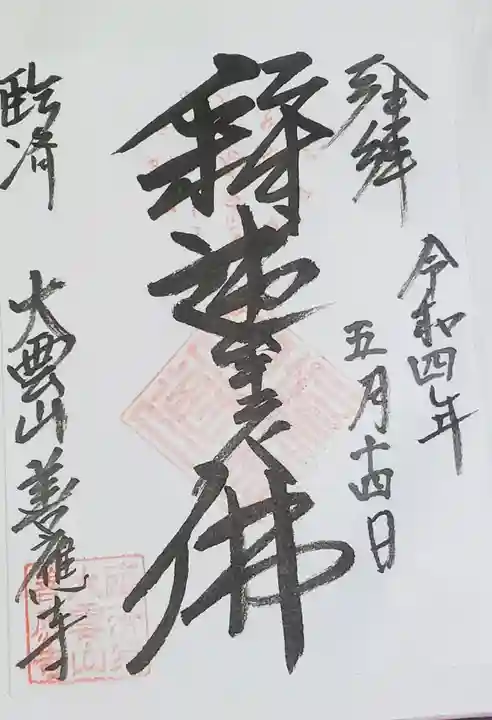 奉拝
令和四年
五月十四日
釋迦牟尼佛
臨済
大雲山善應寺